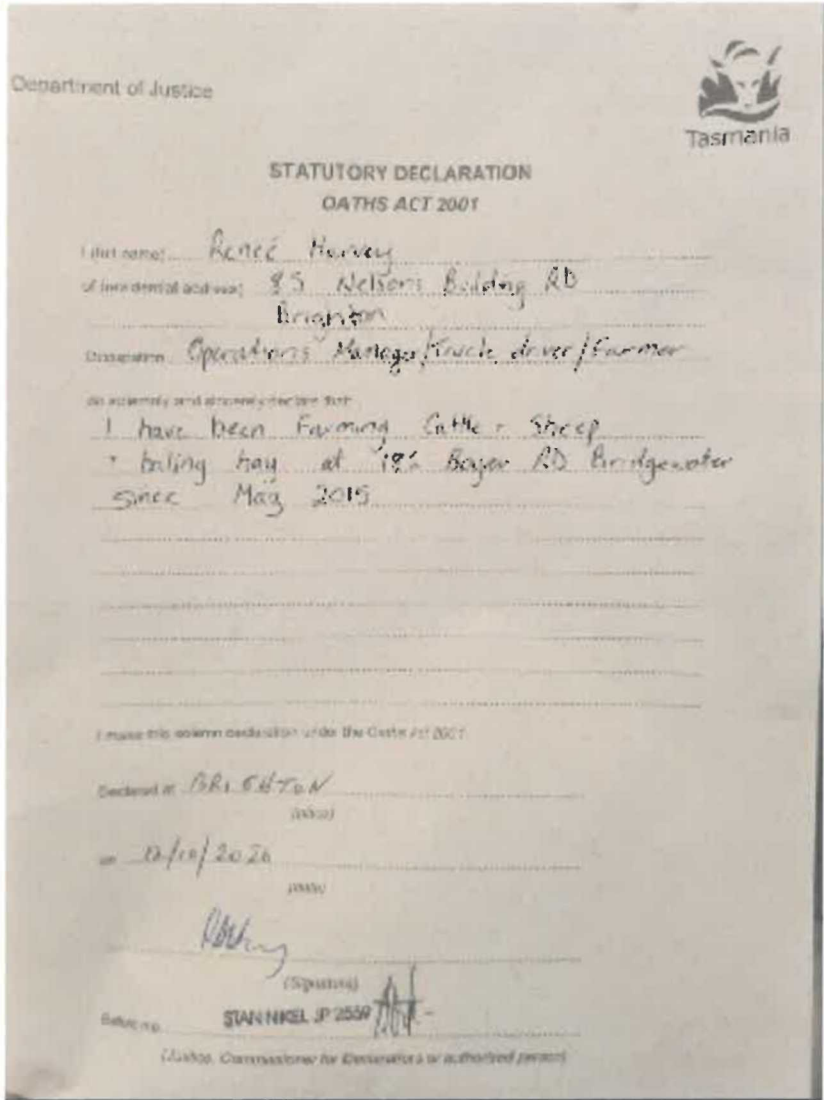 Department of Justice
Tasmania
STATUTORY DECLARATION
OATHS ACT 2001
I (full name) Reneé Harvey
of (residential address) 85 Nelsons Building RD
Brighton
Occupation Operations Manager/Truck driver/Farmer
do solemnly and sincerely declare that
I have been Farming Cattle + Sheep
+ baling hay at Boyer RD Bridgewater
since May 2015
I make this solemn declaration under the Oaths Act 2001
Declared at BRIGHTON
(place)
on /10/2020
(date)
(Signature)
Before me STAN NIKEL JP 2559
(Justice, Commissioner for Declarations or authorised person)